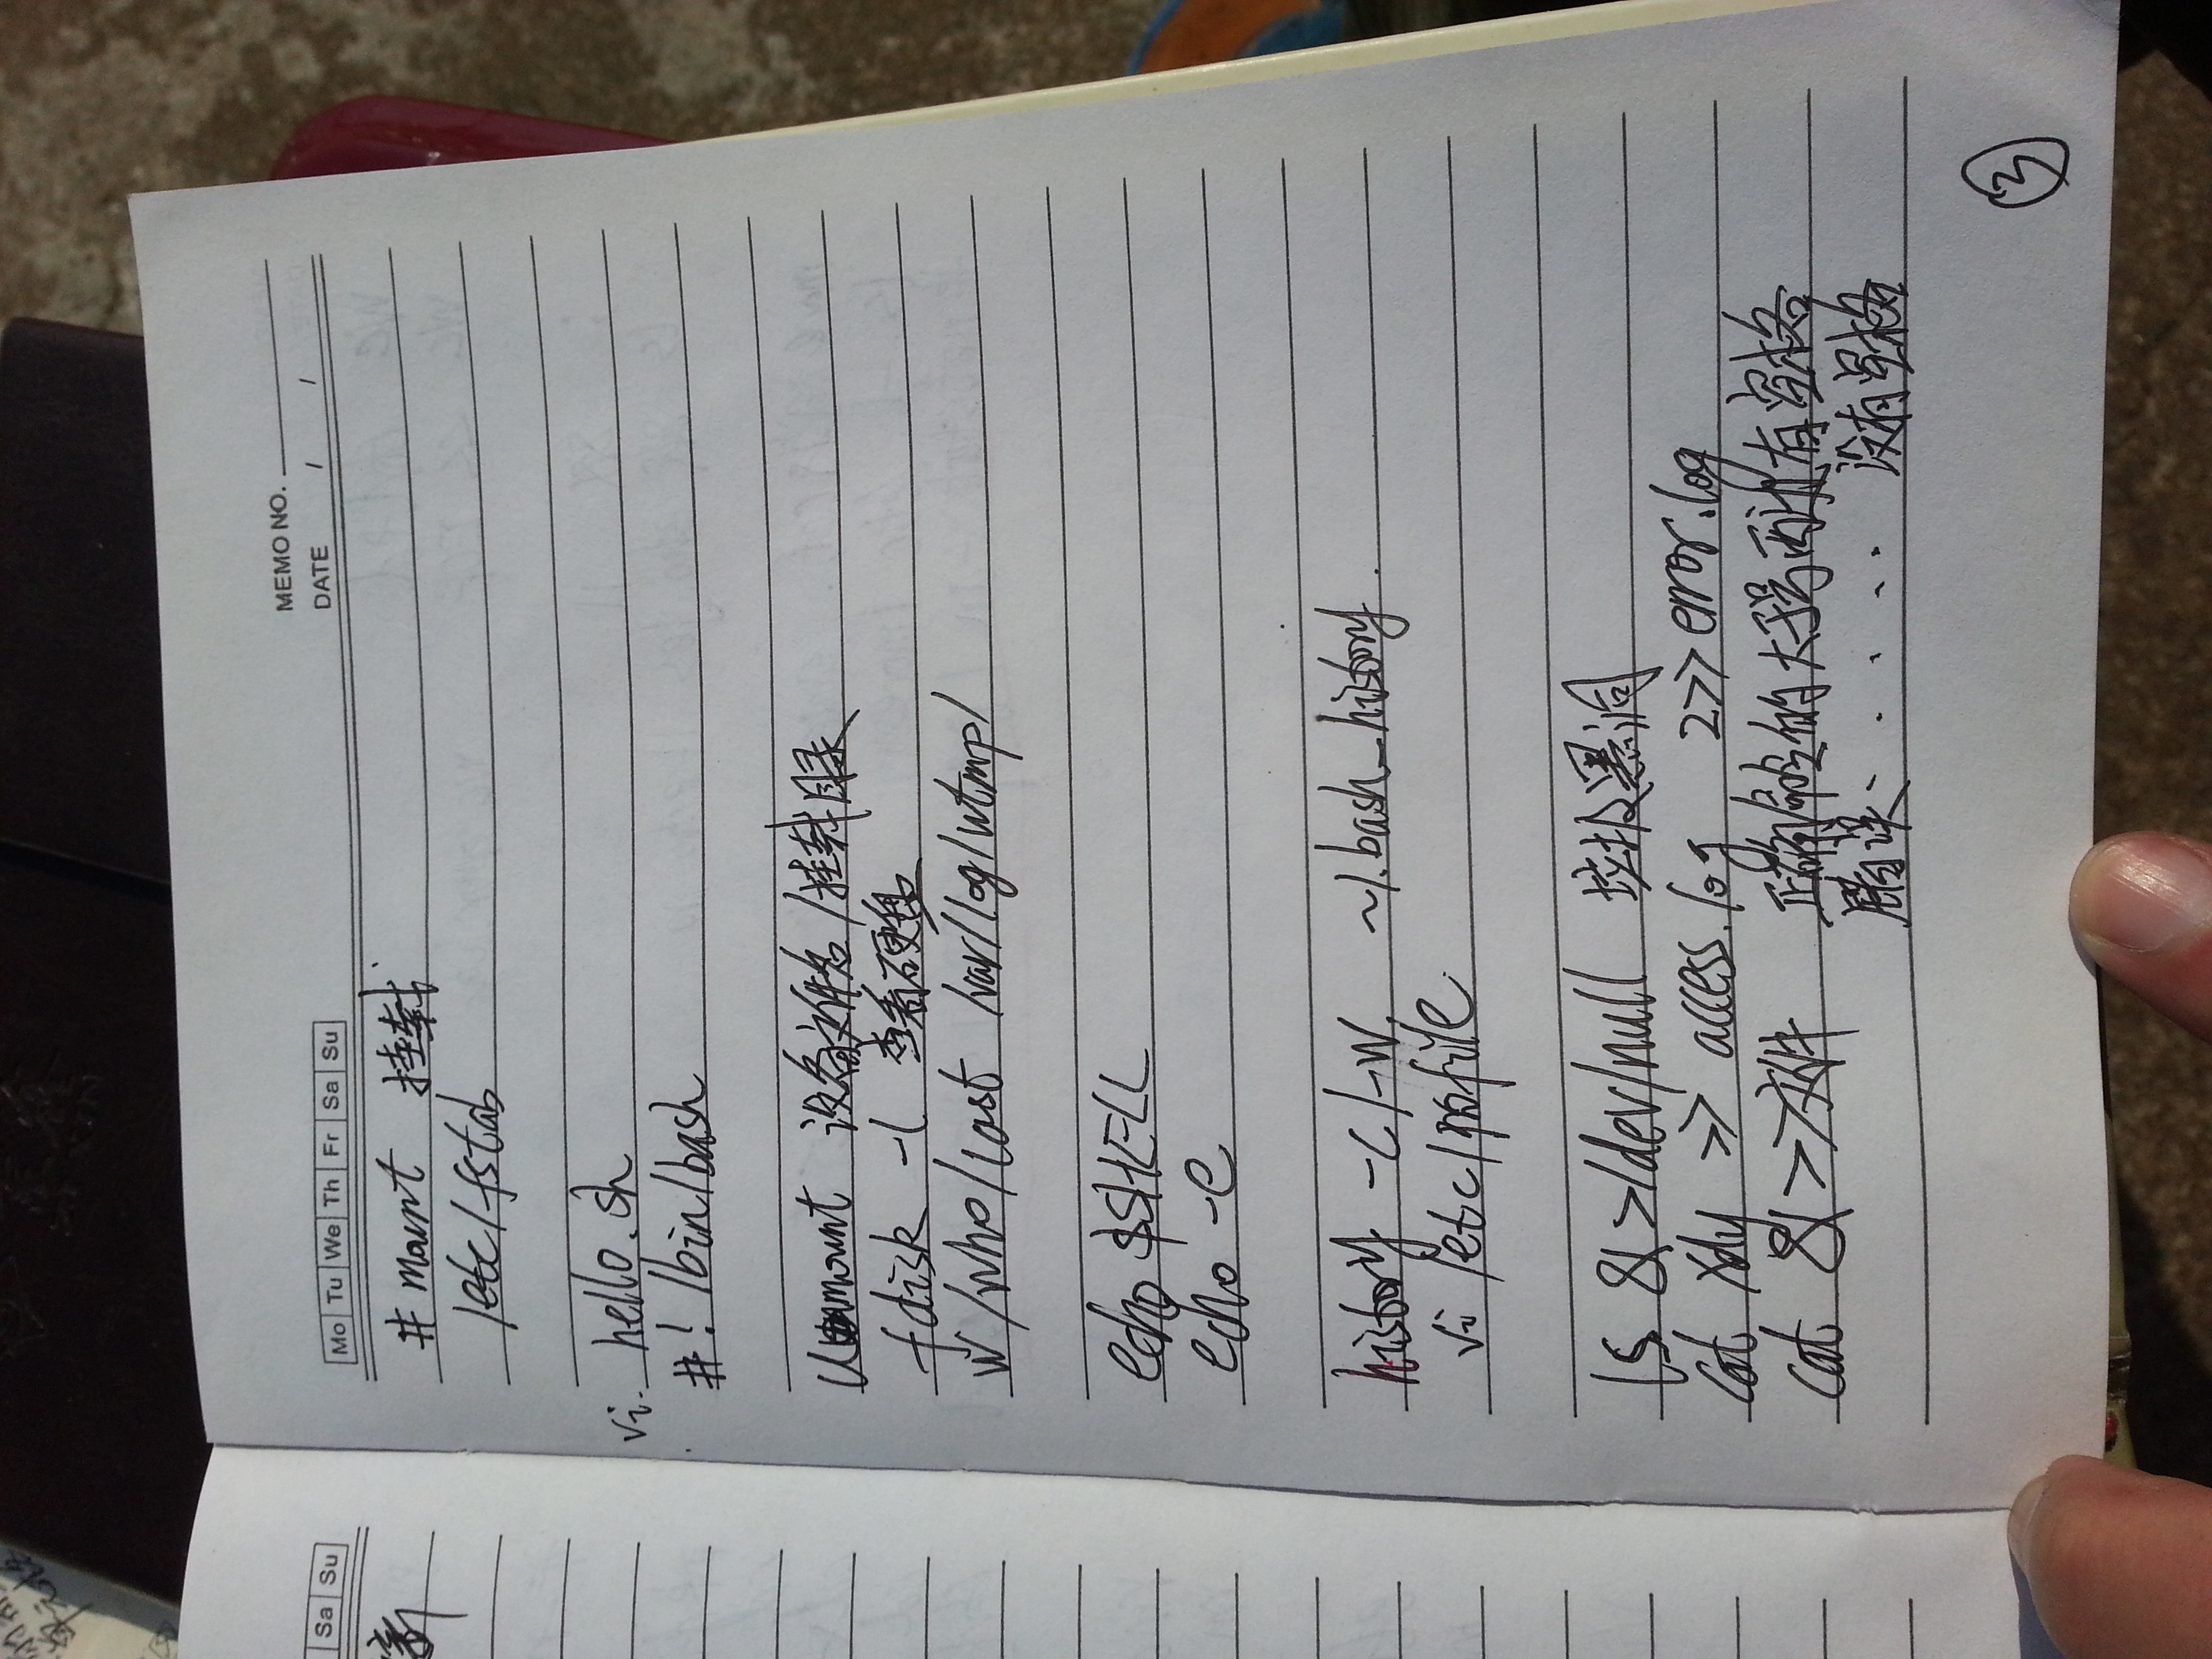 Sa Su
Mo Tu We Th Fr Sa Su
MEMO NO.
DATE / /
# mount 挂载
/etc/fstab
vi hello.sh
#! /bin/bash
Umount 设备文件名/挂载目录
fdisk -l 查看硬盘
w/who/last /var/log/wtmp/
echo $SHELL
echo -e
history -c/-w ~/.bash_history
vi /etc/profile
ls &>/dev/null 垃圾黑洞
cat xdy >> access.log 2>> error.log
cat &>>文件
正确
错误
没有
3